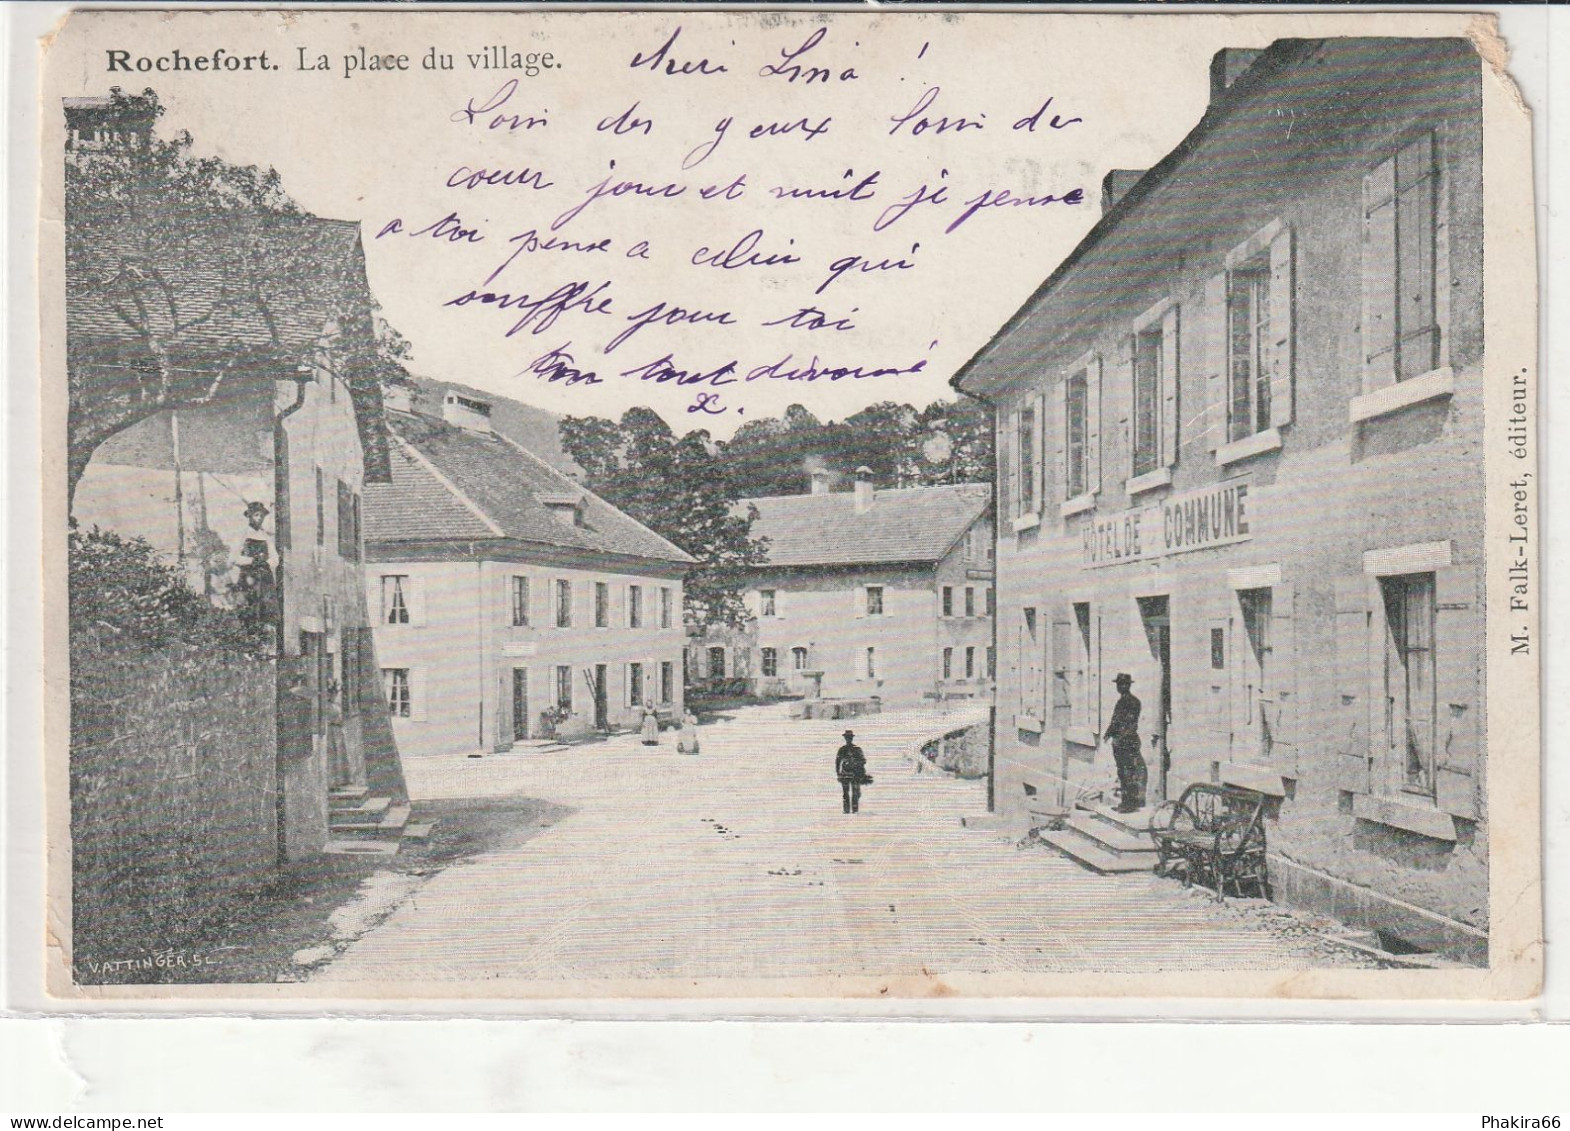 Rochefort. La place du village.
Cheri Lina !
Loin des yeux loin du
coeur jour et nuit je pense
a toi pense a celui qui
souffre pour toi
ton tout dévoué
X.
HÔTEL DE COMMUNE
M. Falk-Leret, éditeur.
VATTINGER.Sc
Phakira66